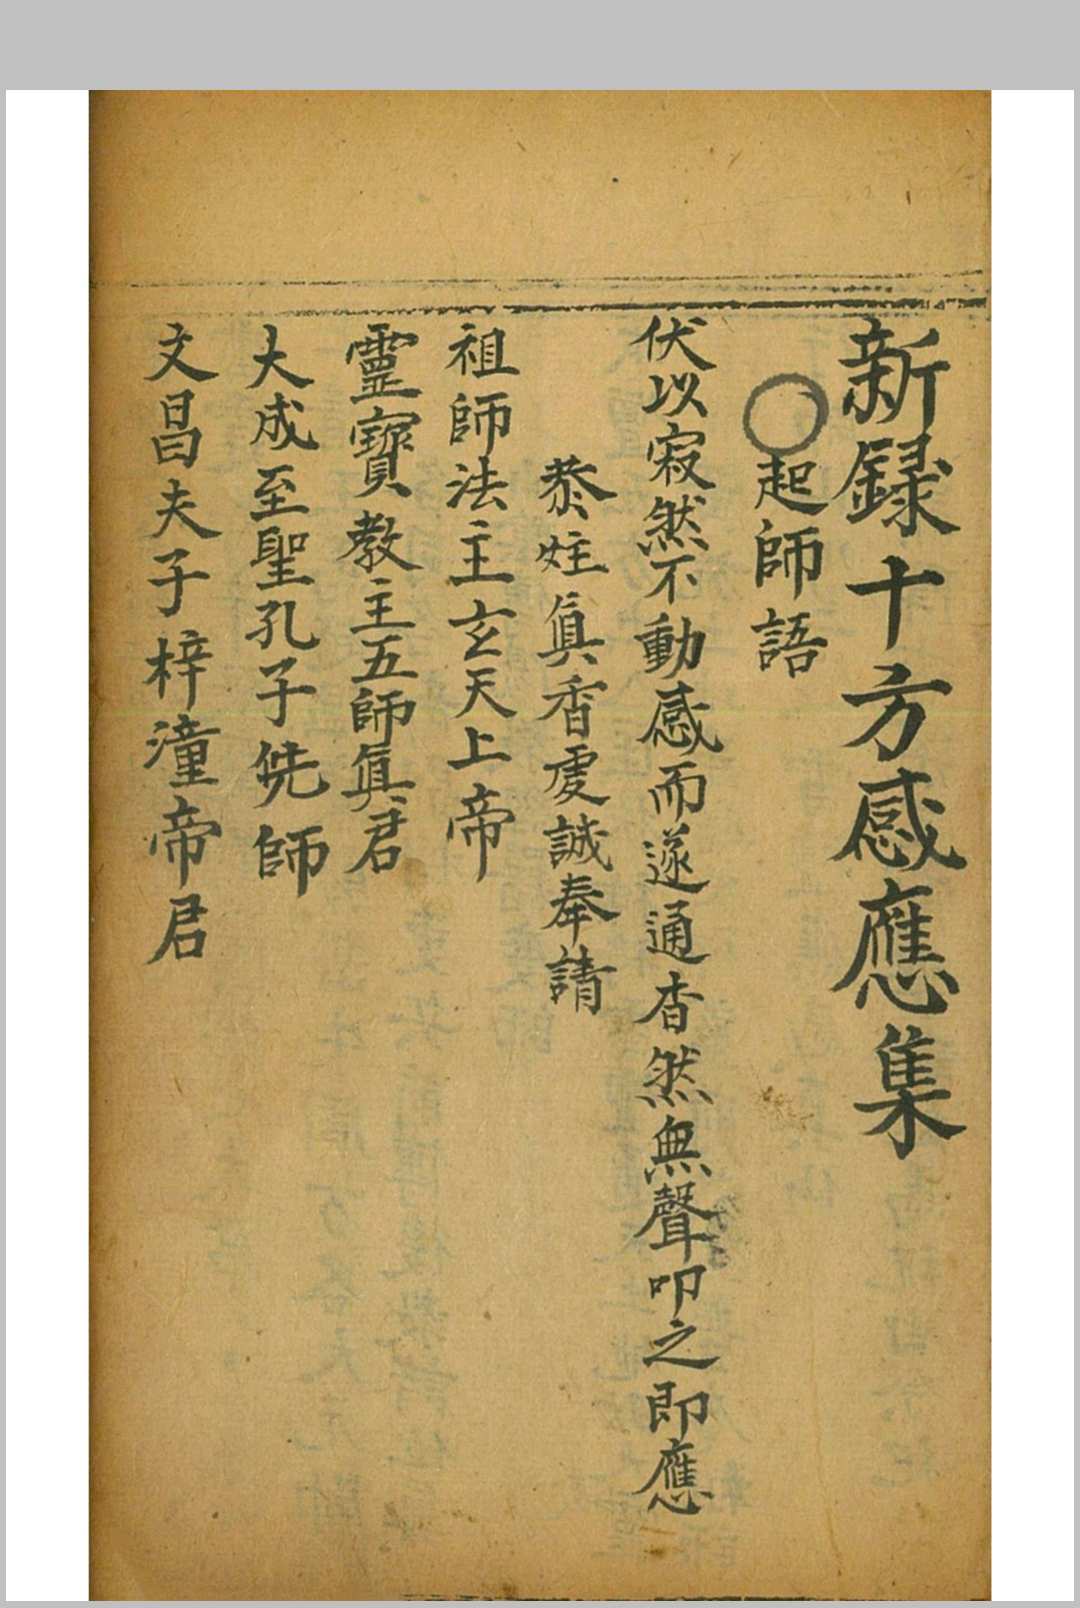 新録十方感應集
〇起師語
伏以寂然不動感而遂通杳然無聲叩之即應
恭炷眞香虔誠奉請
祖師法主玄天上帝
靈寳教主五師眞君
大成至聖孔子先師
文昌夫子梓潼帝君